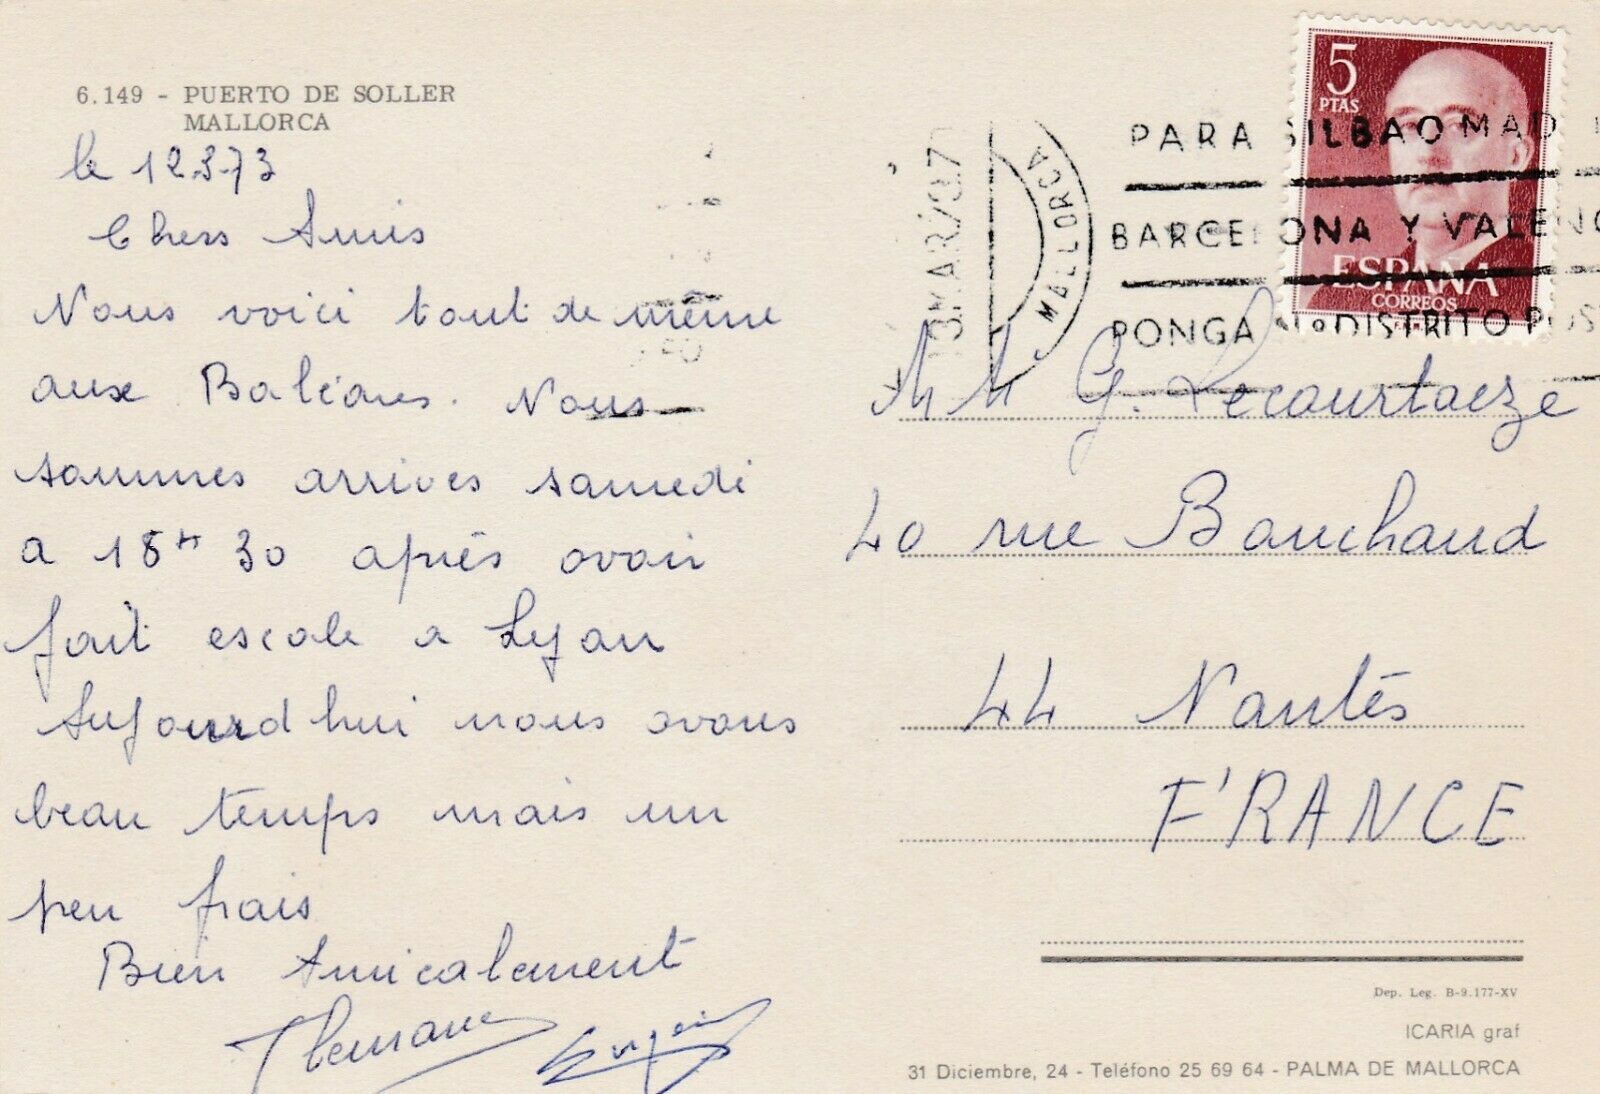 6.149 - PUERTO DE SOLLER
MALLORCA
le 12.3.73
Chers Amis
Nous voici tout de même
aux Baléares. Nous
sommes arrives samedi
a 18H 30 après avoir
fait escale a Lyon
Aujourd hui nous avons
beau temps mais un
peu frais
Bien Amicalement
5
PTAS
ESPAÑA
CORREOS
13MAR
MALLORCA
PARA BILBAO MAD
BARCELONA Y VALENC
PONGA Nº DISTRITO POS
MM G.
40 rue Bauchaud
44 Nantes
FRANCE
Dep. Leg. B-9.177-XV
ICARIA graf
31 Diciembre, 24 - Teléfono 25 69 64 - PALMA DE MALLORCA